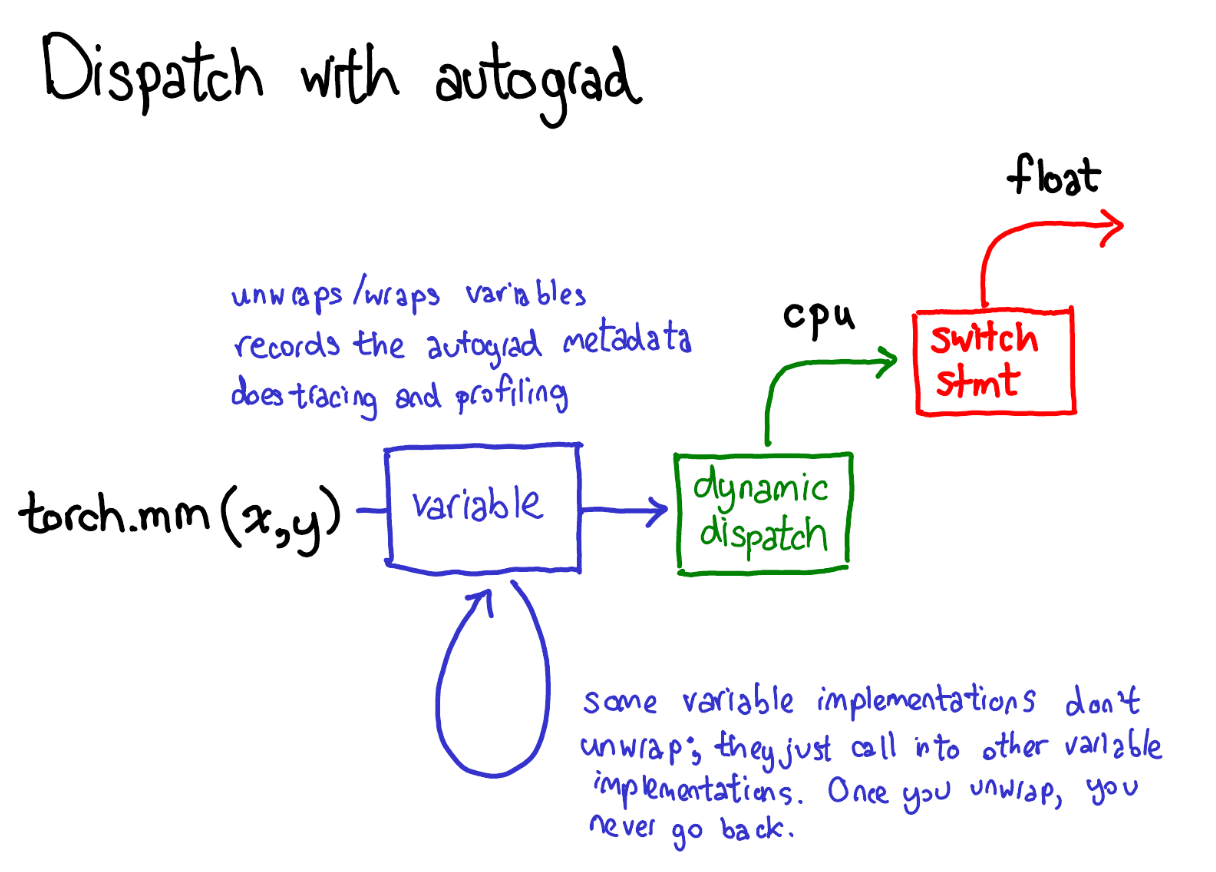 Dispatch with autograd
float
unwraps/wraps variables
records the autograd metadata
does tracing and profiling
cpu
switch
stmt
torch.mm(x,y)
variable
dynamic
dispatch
some variable implementations don't
unwrap; they just call into other variable
implementations. Once you unwrap, you
never go back.